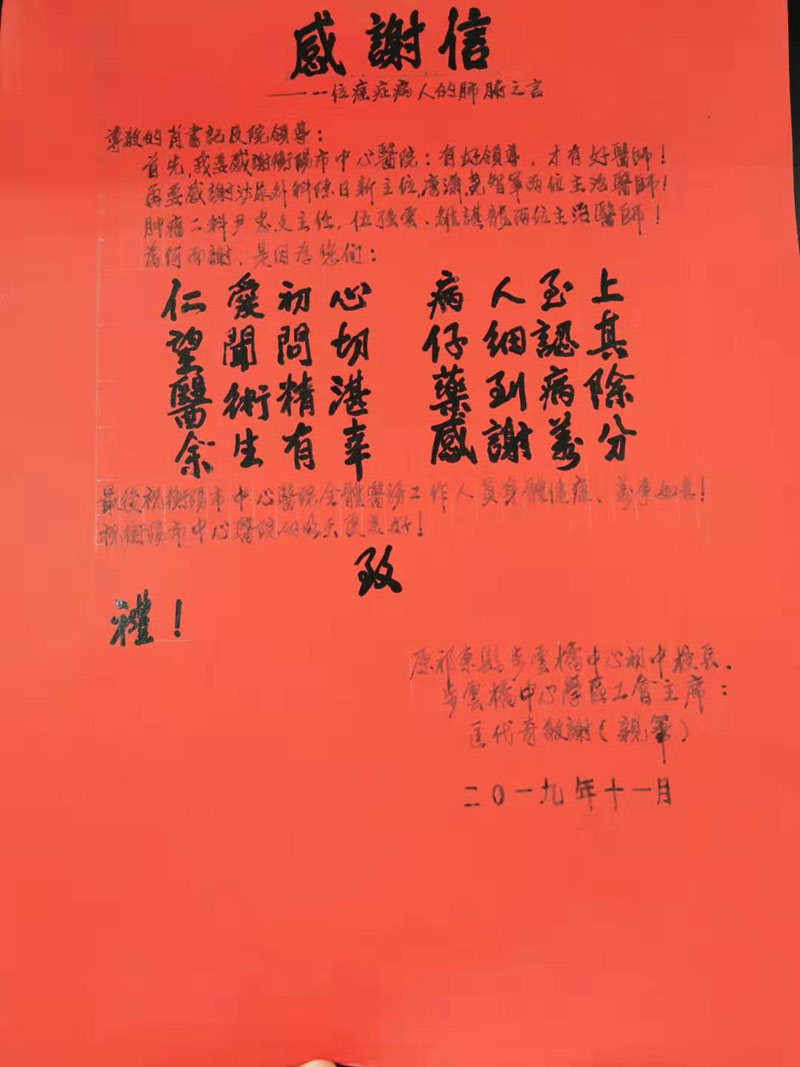 感謝信
———一位癌症病人的肺腑之言
尊敬的肖書記及院領導：
首先，我要感謝衡陽市中心醫院：有好領導，才有好醫師！
再要感謝泌尿外科 日新主任，唐 智軍兩位主治醫師！
肿瘤二科尹忠文主任，伍強雲、 龍兩位主治醫師！
為何而謝，是因為您们：
仁愛初心 病人至上
望聞問切 仔細認真
醫術精湛 藥到病除
余生有幸 感謝萬分
最後祝衡陽市中心醫院全體醫務工作人員身體健康、萬事如意！
祝衡陽市中心醫院的明天更美好！
致
禮！
原祁東縣步雲橋中心初中校長、
步雲橋中心學區工會主席：
匡代奇敬謝（親筆）
二〇一九年十一月